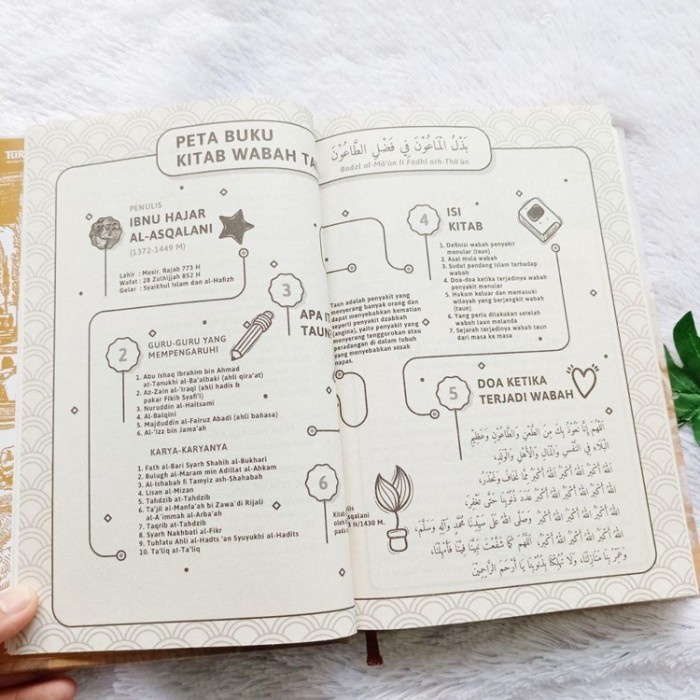 PETA BUKU
KITAB WABAH TA
PENULIS
IBNU HAJAR
AL-ASQALANI
(1372-1449 M)
Lahir : Mesir, Rajab 773 H
Wafat : 28 Zulhijjah 852 H
Gelar : Syaikhul Islam dan al-Hafizh
2
GURU-GURU YANG
MEMPENGARUHI
1. Abu Ishaq Ibrahim bin Ahmad
at-Tanukhi al-Ba'albaki (ahli qira'at)
2. Az-Zain al-'Iraqi (ahli hadis &
pakar Fikih Syafi'i)
3. Nuruddin al-Haitsami
4. Al-Balqini
5. Majduddin al-Fairuz Abadi (ahli bahasa)
6. Al-'Izz bin Jama'ah
KARYA-KARYANYA
1. Fath al-Bari Syarh Shahih al-Bukhari
2. Bulugh al-Maram min Adillat al-Ahkam
3. Al-Ishabah fi Tamyiz ash-Shahabah
4. Lisan al-Mizan
5. Tahdzib at-Tahdzib
6. Ta'jil al-Manfa'ah bi Zawa'di Rijali
al-A'immah al-Arba'ah
7. Taqrib at-Tahdzib
8. Syarh Nakhbati al-Fikr
9. Tuhfatu Ahli al-Hadits 'an Syuyukhi al-Hadits
10. Ta'liq at-Ta'liq
3
APA IT
TAUN
6
بَذْلُ الْمَاعُوْنَ فِي فَضْلِ الطَّاعُوْنَ
Badzl al-Mâ'ûn fî Fadhl ath-Thâ'ûn
Taun adalah penyakit yang
menyerang banyak orang dan
dapat menyebabkan kematian
seperti penyakit dzabhah
(angina), yaitu penyakit yang
menyerang tenggorokan atau
peradangan di dalam tubuh
yang menyebabkan sesak
napas.
4
ISI
KITAB
1. Definisi wabah penyakit
menular (taun)
2. Asal mula wabah
3. Sudut pandang Islam terhadap
wabah
4. Doa-doa ketika terjadinya wabah
penyakit menular
5. Hukum keluar dan memasuki
wilayah yang berjangkit wabah
(taun)
6. Yang perlu dilakukan setelah
wabah taun melanda
7. Sejarah terjadinya wabah taun
dari masa ke masa
5
DOA KETIKA
TERJADI WABAH
اَللّٰهُمَّ إِنَّا نَعُوْذُ بِكَ مِنَ الطَّعْنِ وَالطَّاعُوْنِ وَعَظِيْمِ
الْبَلَاءِ فِي النَّفْسِ وَالْمَالِ وَالْأَهْلِ وَالْوَلَدِ،
اَللّٰهُ أَكْبَرُ اَللّٰهُ أَكْبَرُ اَللّٰهُ أَكْبَرُ مِمَّا نَخَافُ وَنَحْذَرُ،
اَللّٰهُ أَكْبَرُ اَللّٰهُ أَكْبَرُ اَللّٰهُ أَكْبَرُ عَدَدَ ذُنُوْبِنَا حَتَّى تُغْفَرَ،
اَللّٰهُ أَكْبَرُ اَللّٰهُ أَكْبَرُ اَللّٰهُ أَكْبَرُ وَصَلَّى اللهُ عَلَى سَيِّدِنَا مُحَمَّدٍ وَآلِهِ وَسَلَّمَ،
اَللّٰهُ أَكْبَرُ اَللّٰهُ أَكْبَرُ اَللّٰهُ أَكْبَرُ، اَللّٰهُمَّ كَمَا شَفَّعْتَ نَبِيَّنَا فِيْنَا فَأَمْهِلْنَا،
وَعَمِّرْ بِنَا مَنَازِلَنَا، وَلَا تُهْلِكْنَا بِذُنُوْبِنَا يَا أَرْحَمَ الرَّاحِمِيْنَ